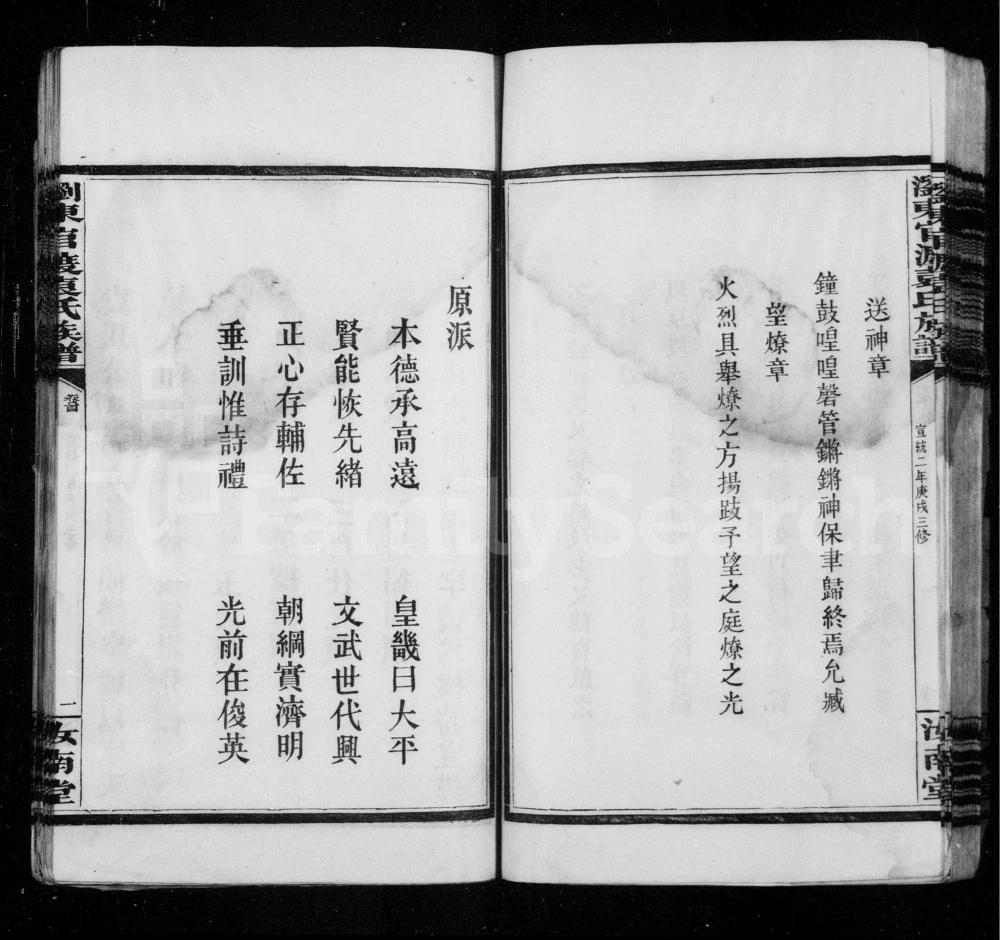 瀏東官渡袁氏族譜
宣統二年庚戌三修
汝南堂
送神章
鐘鼓喤喤磬管鏘鏘神保聿歸終焉允臧
望燎章
火烈具舉燎之方揚跂予望之庭燎之光
原派
本德承高遠 皇畿曰大平
賢能恢先緒 文武世代興
正心存輔佐 朝綱實濟明
垂訓惟詩禮 光前在俊英
瀏東官渡袁氏族譜
一
汝南堂
FamilySearch